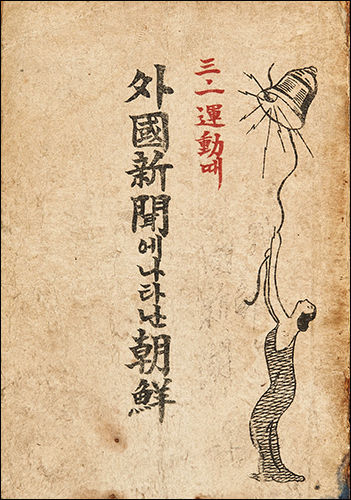 三·一運動때
外國新聞에나타난朝鮮